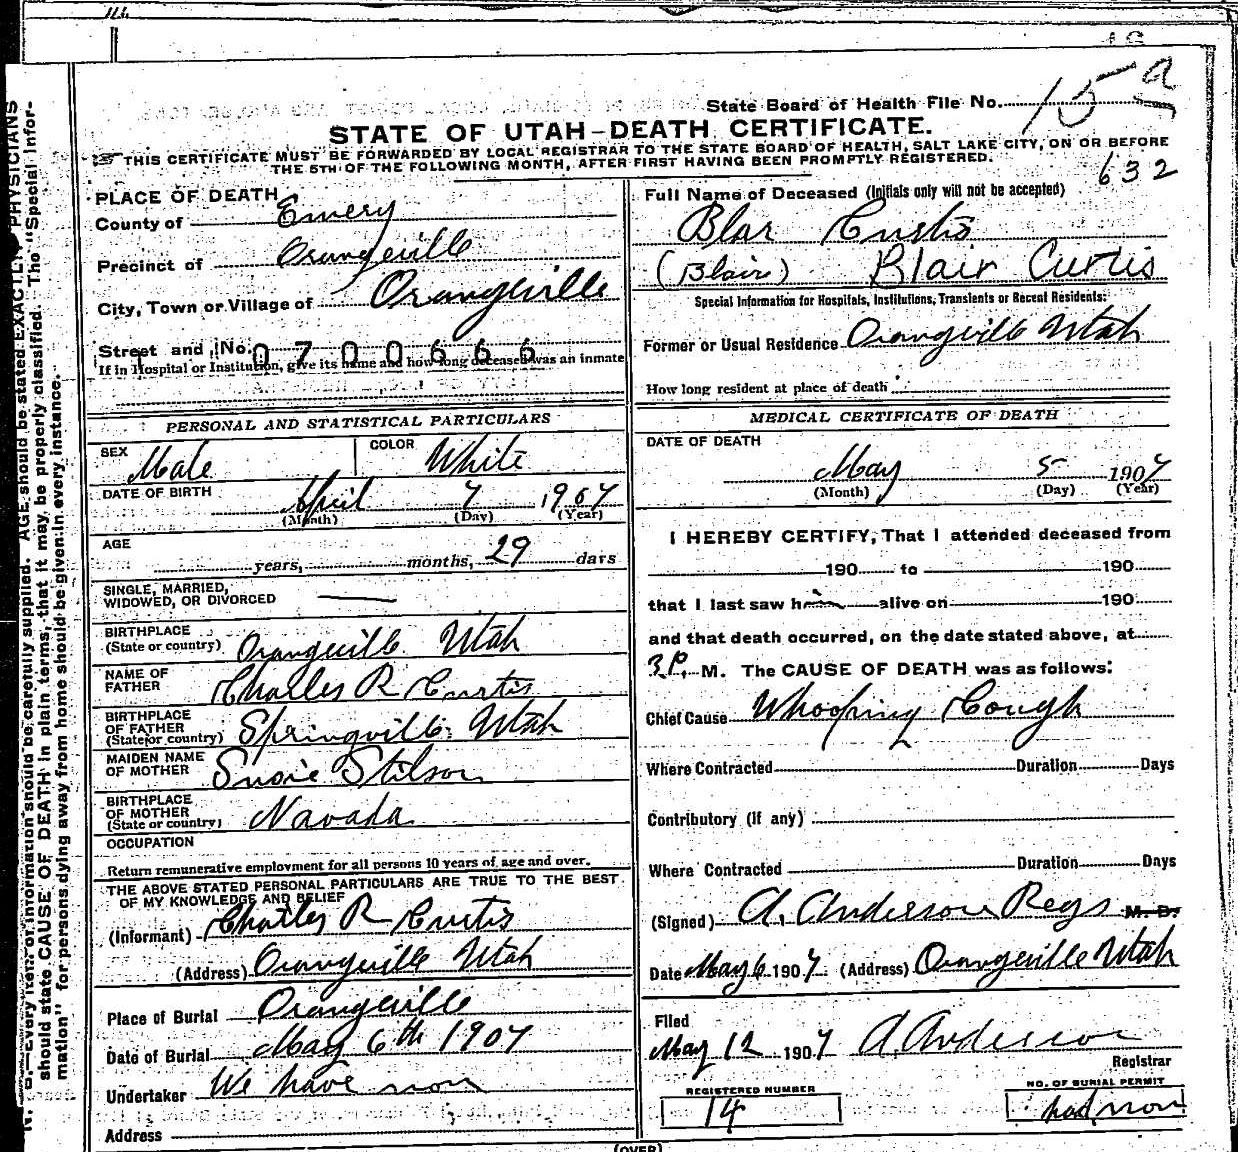 State Board of Health File No. 15 a
STATE OF UTAH—DEATH CERTIFICATE.
THIS CERTIFICATE MUST BE FORWARDED BY LOCAL REGISTRAR TO THE STATE BOARD OF HEALTH, SALT LAKE CITY, ON OR BEFORE
THE 5TH OF THE FOLLOWING MONTH, AFTER FIRST HAVING BEEN PROMPTLY REGISTERED.
632
PLACE OF DEATH
County of Emery
Precinct of Orangeville
City, Town or Village of Orangeville
Street and No. 0700666
If in Hospital or Institution, give its name and how long deceased was an inmate
Full Name of Deceased (Initials only will not be accepted)
Blar Curtis
(Blair) Blair Curtis
Special Information for Hospitals, Institutions, Transients or Recent Residents:
Former or Usual Residence Orangeville Utah
How long resident at place of death
PERSONAL AND STATISTICAL PARTICULARS
SEX Male COLOR White
DATE OF BIRTH April 7 1907
(Month) (Day) (Year)
AGE years, months, 29 days
SINGLE, MARRIED,
WIDOWED, OR DIVORCED
BIRTHPLACE
(State or country) Orangeville Utah
NAME OF
FATHER Charles R Curtis
BIRTHPLACE
OF FATHER
(State or country) Springville Utah
MAIDEN NAME
OF MOTHER Susie Stilson
BIRTHPLACE
OF MOTHER
(State or country) Navada
OCCUPATION
Return remunerative employment for all persons 10 years of age and over.
THE ABOVE STATED PERSONAL PARTICULARS ARE TRUE TO THE BEST
OF MY KNOWLEDGE AND BELIEF
(Informant) Charles R Curtis
(Address) Orangeville Utah
Place of Burial Orangeville
Date of Burial May 6th 1907
Undertaker We have non
Address
MEDICAL CERTIFICATE OF DEATH
DATE OF DEATH
May 5 1907
(Month) (Day) (Year)
I HEREBY CERTIFY, That I attended deceased from
190 to 190
that I last saw him alive on 190
and that death occurred, on the date stated above, at
3 P. M. The CAUSE OF DEATH was as follows:
Chief Cause Whooping Cough
Where Contracted Duration Days
Contributory (if any)
Where Contracted Duration Days
(Signed) A. Anderson Regs M. D.
Date May 6 1907 (Address) Orangeville Utah
Filed
May 12 1907 A Anderson
Registrar
REGISTERED NUMBER
14
NO. OF BURIAL PERMIT
had non
(OVER)
N. B.—Every item of information should be carefully supplied. AGE should be stated EXACTLY. PHYSICIANS
should state CAUSE OF DEATH in plain terms, that it may be properly classified. The "Special Infor-
mation" for persons dying away from home should be given in every instance.